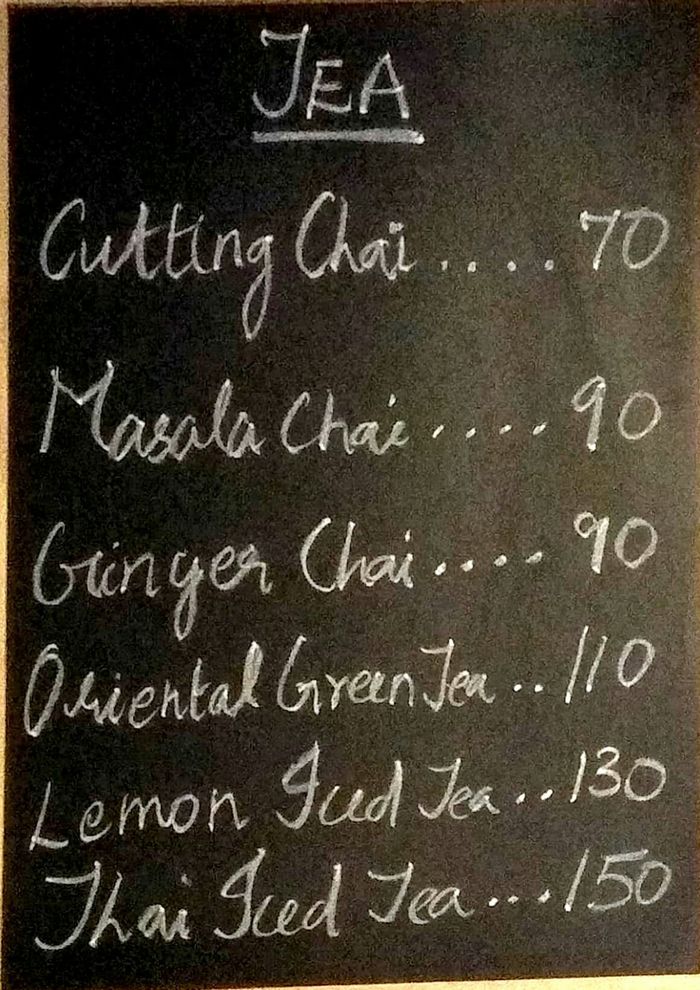 TEA
Cutting Chai ..... 70
Masala Chai ..... 90
Ginger Chai ..... 90
Oriental Green Tea .. 110
Lemon Iced Tea .. 130
Thai Iced Tea ... 150